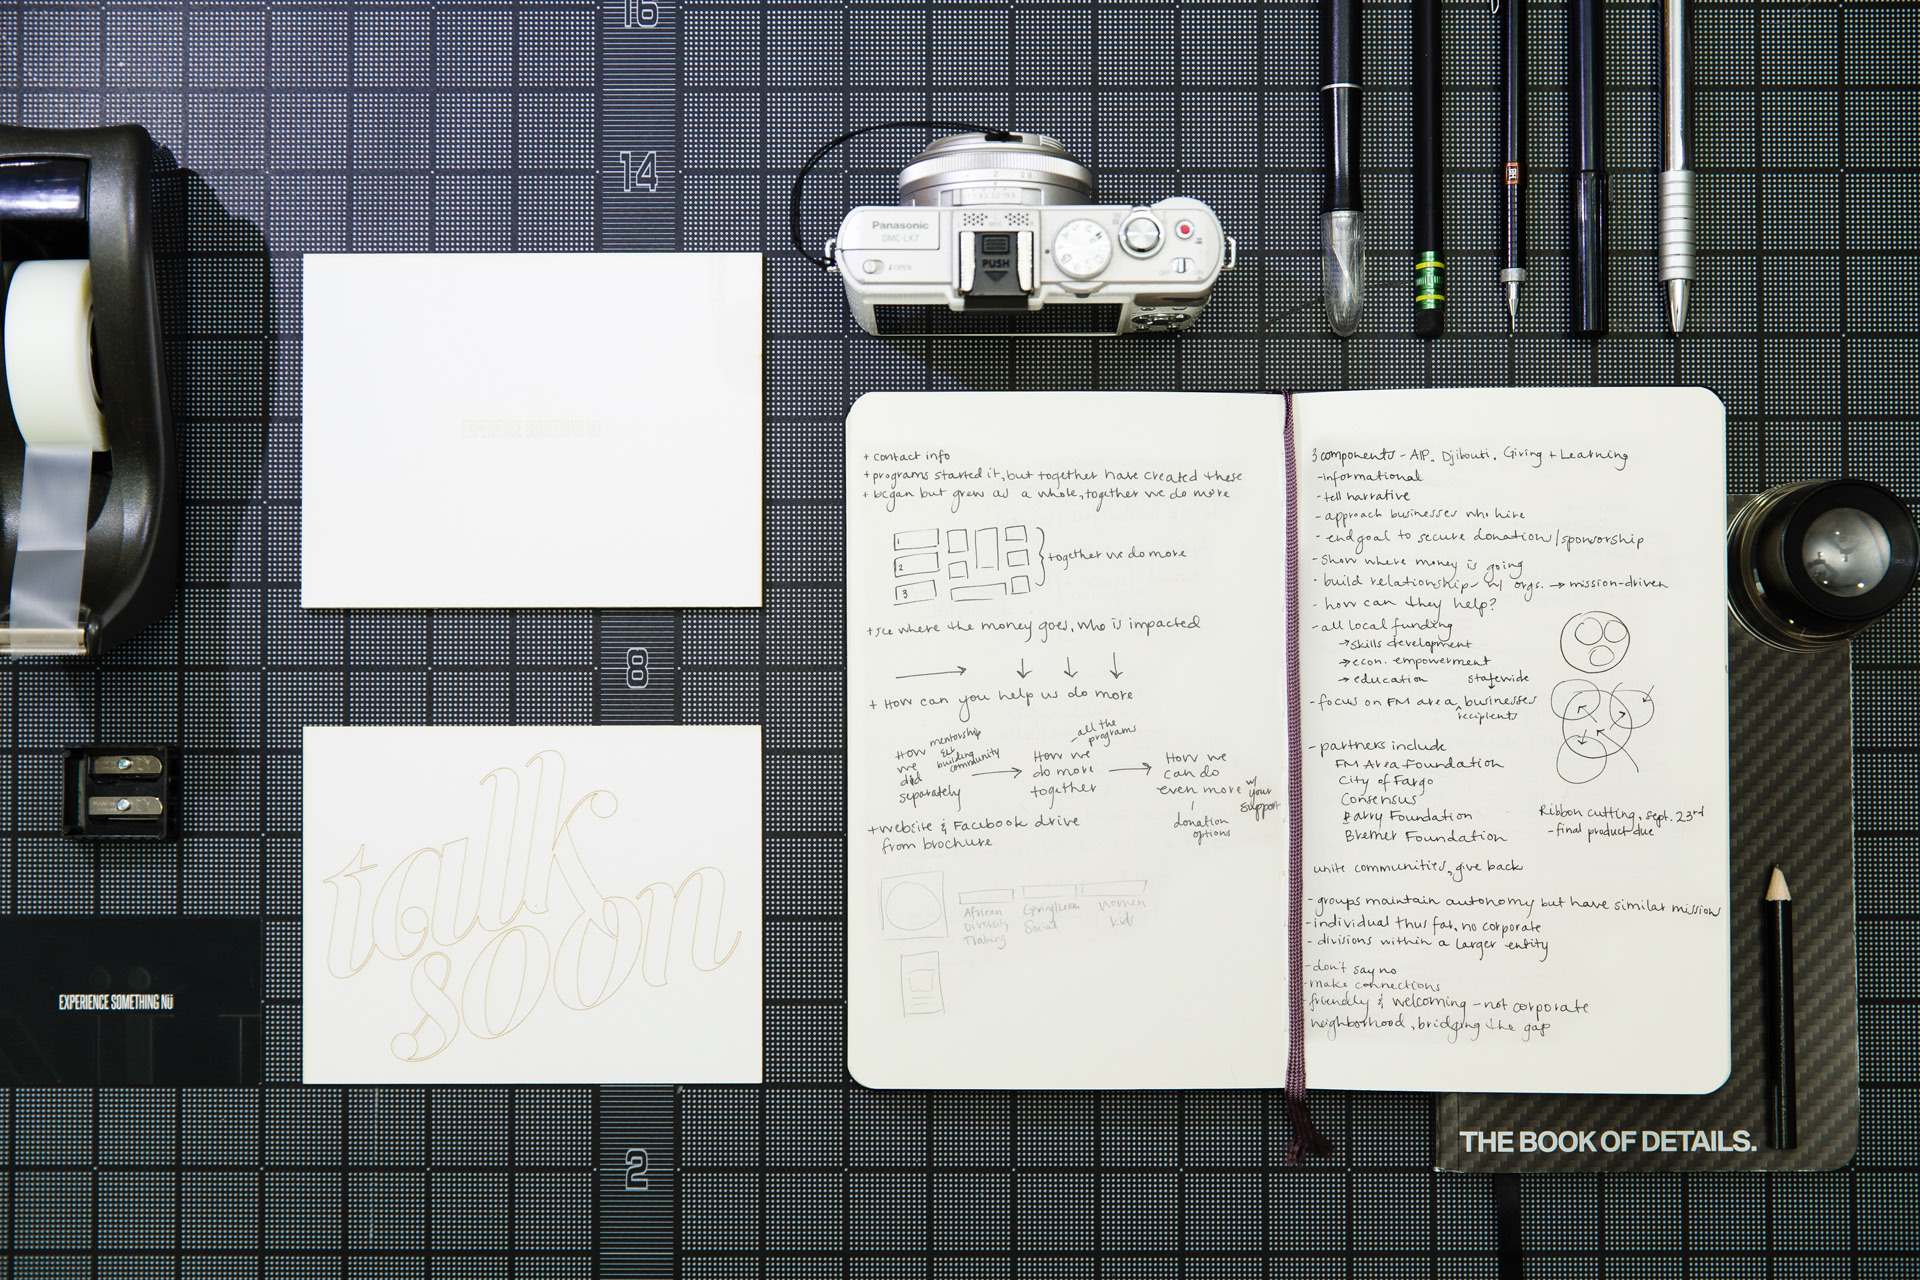 16
14
8
2
EXPERIENCE SOMETHING NÜ
talk
soon
EXPERIENCE SOMETHING NÜ
Panasonic
DMC-LX7
OPEN
PUSH
OFF ON
+ contact info
+ programs started it, but together have created these
+ began but grew as a whole, together we do more
1
2
3
together we do more
+ see where the money goes, who is impacted
+ How can you help us do more
How we did separately
mentorship & building community
How we do more together
all the programs
How we can do even more w/ your support
donation options
+ website & Facebook drive
from brochure
African Diversity Training
Social
women kids
3 components - AIP, Djibouti, Giving + Learning
- informational
- tell narrative
- approach businesses who hire
- end goal to secure donation/sponsorship
- show where money is going
- build relationship w/ orgs. → mission-driven
- how can they help?
- all local funding
→ skills development
→ econ. empowerment
→ education
statewide
- focus on FM area businesses
recipients
- partners include
FM Area Foundation
City of Fargo
Consensus
Barry Foundation
Bremer Foundation
Ribbon cutting, sept. 23rd
- final product due
unite communities, give back
- groups maintain autonomy but have similar mission
- individual thus far, no corporate
- divisions within a larger entity
- don't say no
- make connections
- friendly & welcoming - not corporate
neighborhood, bridging the gap
THE BOOK OF DETAILS.